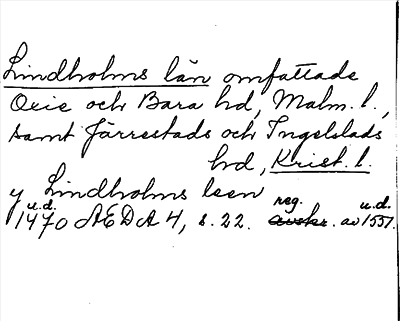 Lindholms län omfattade
Oxie och Bara hd, Malm. l.,
samt Järrestads och Ingelstads
hrd, Krist. l.
y Lindholms leen
u.d. reg. u.d.
1470 ÆDA 4, s. 22. avskr. av 1551.